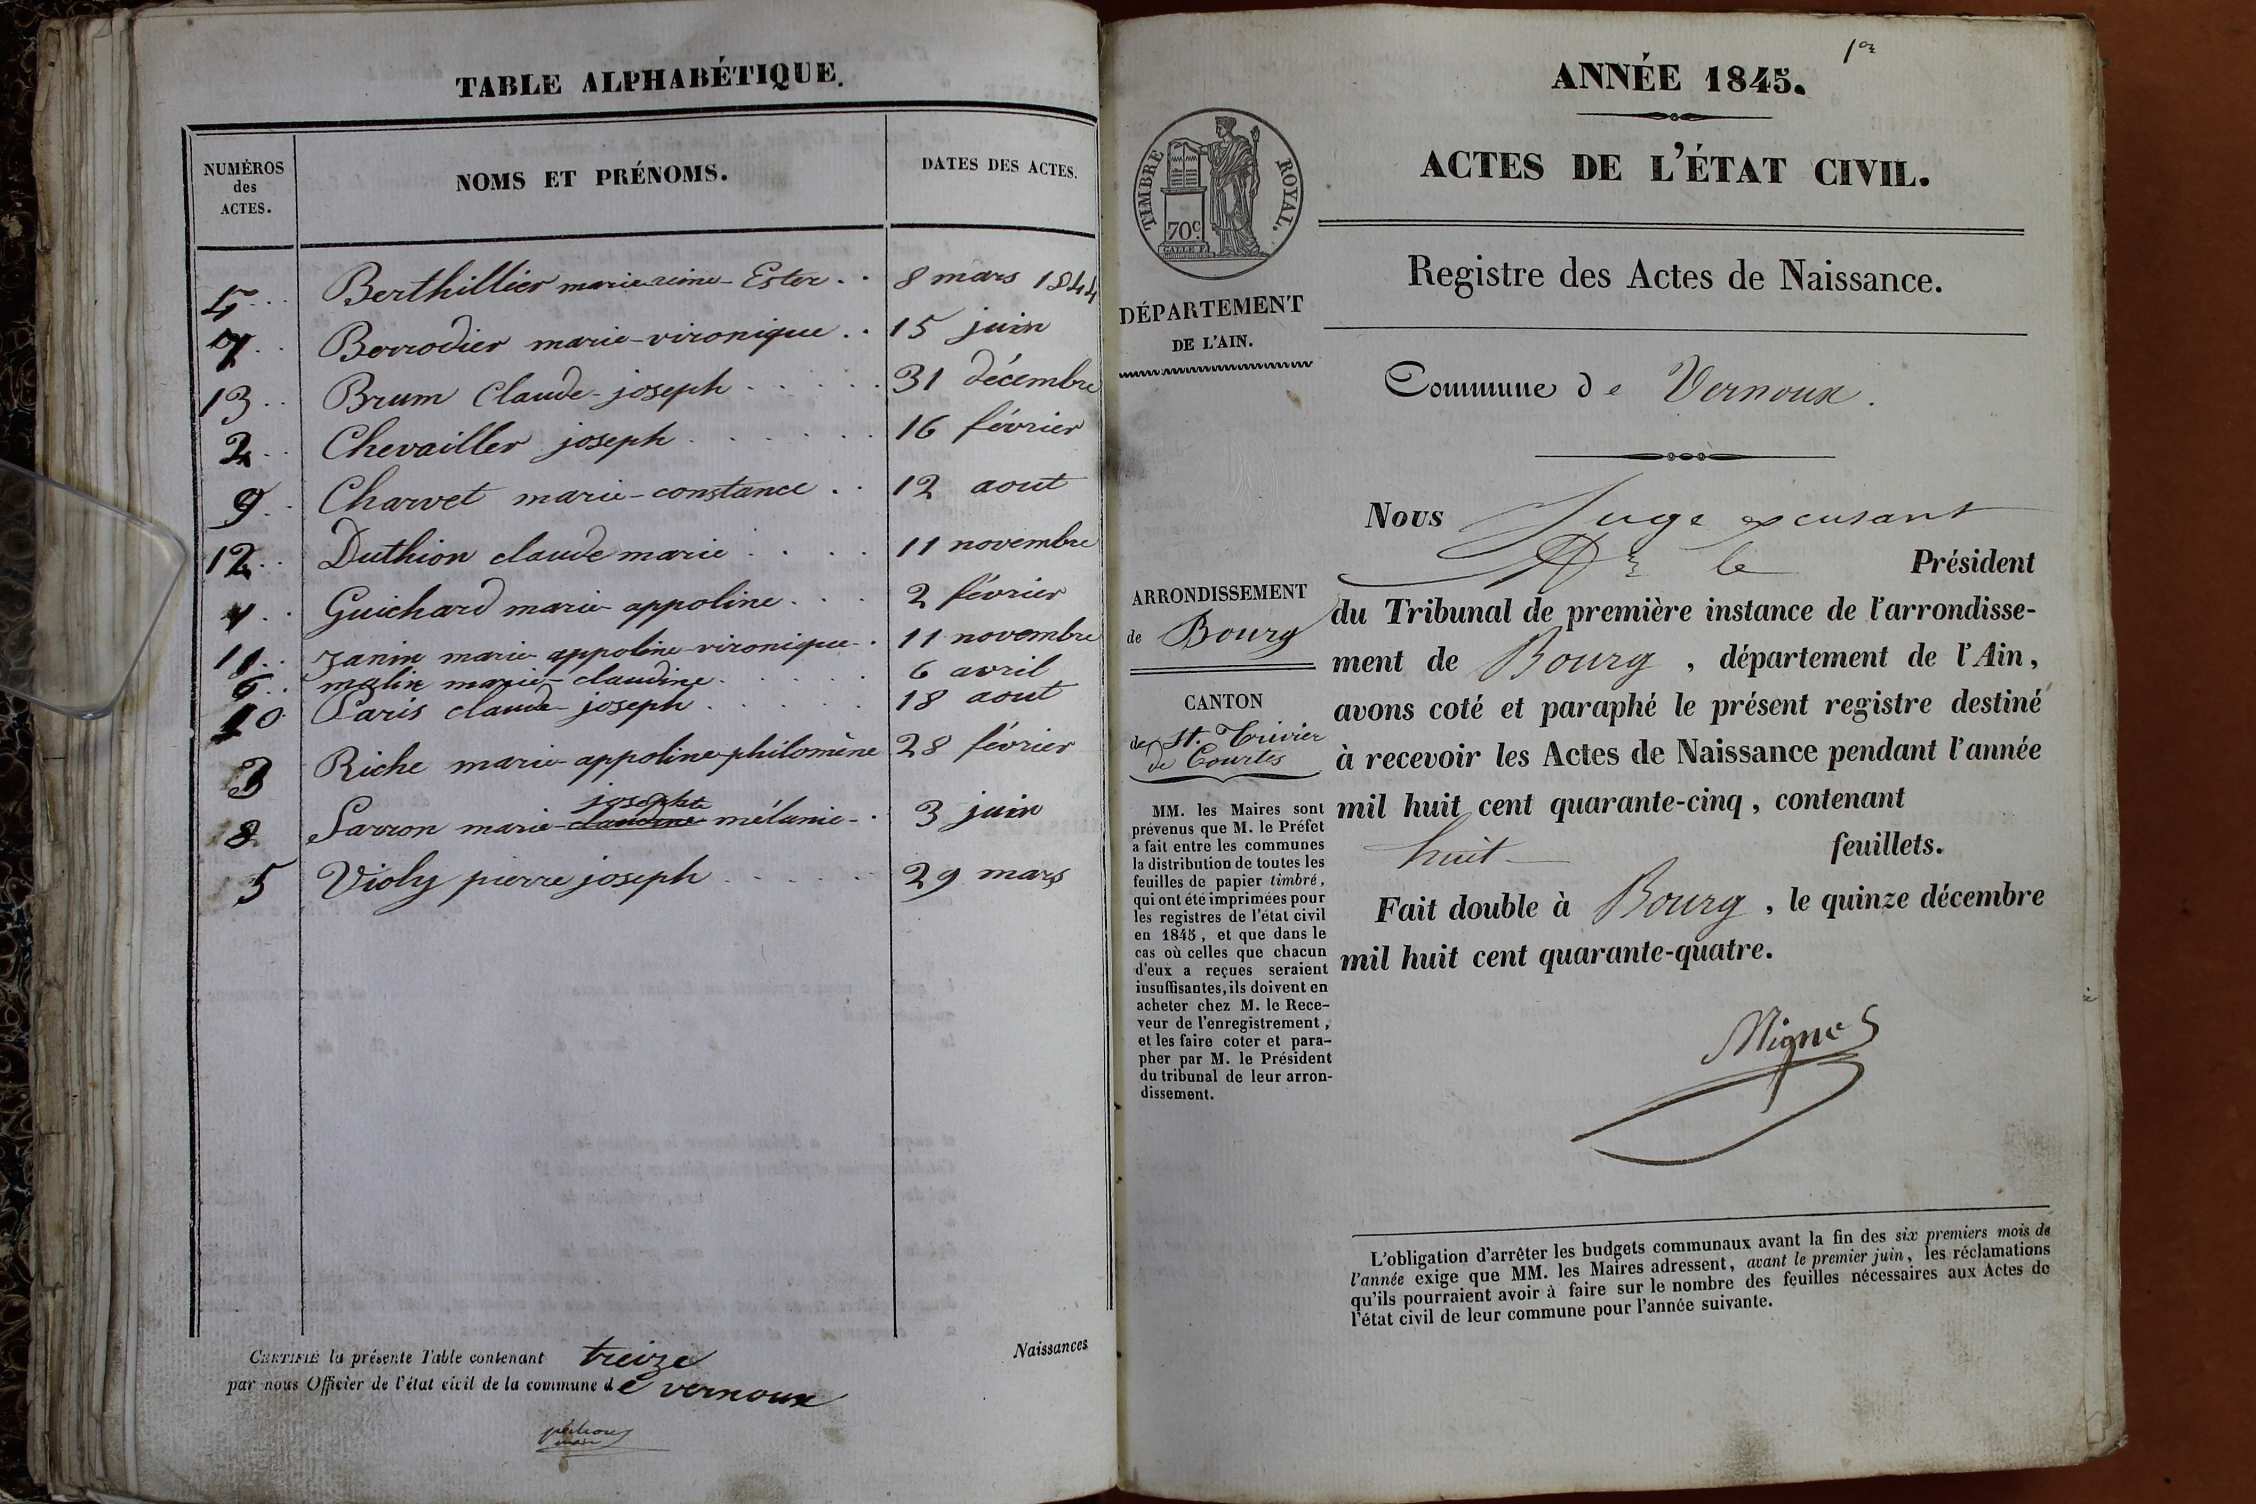 TABLE ALPHABÉTIQUE.
NUMÉROS
des
ACTES.
NOMS ET PRÉNOMS.
DATES DES ACTES.
4 . . Berthillier marie reine - Ester . . 8 mars 1844
7 . . Berrodier marie - vironique . . 15 juin
13 . . Brum Claude - joseph . . . . . 31 décembre
2 . . Chevailler joseph . . . . . . 16 février
9 . . Charvet marie - constance . . 12 aout
12 . . Duthion claude marie . . . . 11 novembre
1 . . Guichard marie appoline . . . 2 février
11 . . Janin marie appoline - vironique . 11 novembre
6 . . malin marie - claudine . . . . . 6 avril
10 Paris claude - joseph . . . . . 18 aout
3 Riche marie appoline - philomène 28 février
josephte
8 Sarron marie - claudine mélanie - . 3 juin
5 Violy pierre joseph . . . . . . 29 mars
CERTIFIÉ la présente Table contenant treize
par nous Officier de l'état civil de la commune de vernoux
Naissances
1er
ANNÉE 1845.
ACTES DE L'ÉTAT CIVIL.
TIMBRE ROYAL.
70c.
Registre des Actes de Naissance.
DÉPARTEMENT
DE L'AIN.
Commune de Vernoux.
Nous Juge excusant
Mr le Président
ARRONDISSEMENT
de Bourg
du Tribunal de première instance de l'arrondisse-
ment de Bourg, département de l'Ain,
avons coté et paraphé le présent registre destiné
à recevoir les Actes de Naissance pendant l'année
mil huit cent quarante-cinq, contenant
huit feuillets.
Fait double à Bourg, le quinze décembre
mil huit cent quarante-quatre.
CANTON
de St. Trivier
de Courtes
MM. les Maires sont
prévenus que M. le Préfet
a fait entre les communes
la distribution de toutes les
feuilles de papier timbré,
qui ont été imprimées pour
les registres de l'état civil
en 1845, et que dans le
cas où celles que chacun
d'eux a reçues seraient
insuffisantes, ils doivent en
acheter chez M. le Rece-
veur de l'enregistrement,
et les faire coter et para-
pher par M. le Président
du tribunal de leur arron-
dissement.
L'obligation d'arrêter les budgets communaux avant la fin des six premiers mois de
l'année exige que MM. les Maires adressent, avant le premier juin, les réclamations
qu'ils pourraient avoir à faire sur le nombre des feuilles nécessaires aux Actes de
l'état civil de leur commune pour l'année suivante.